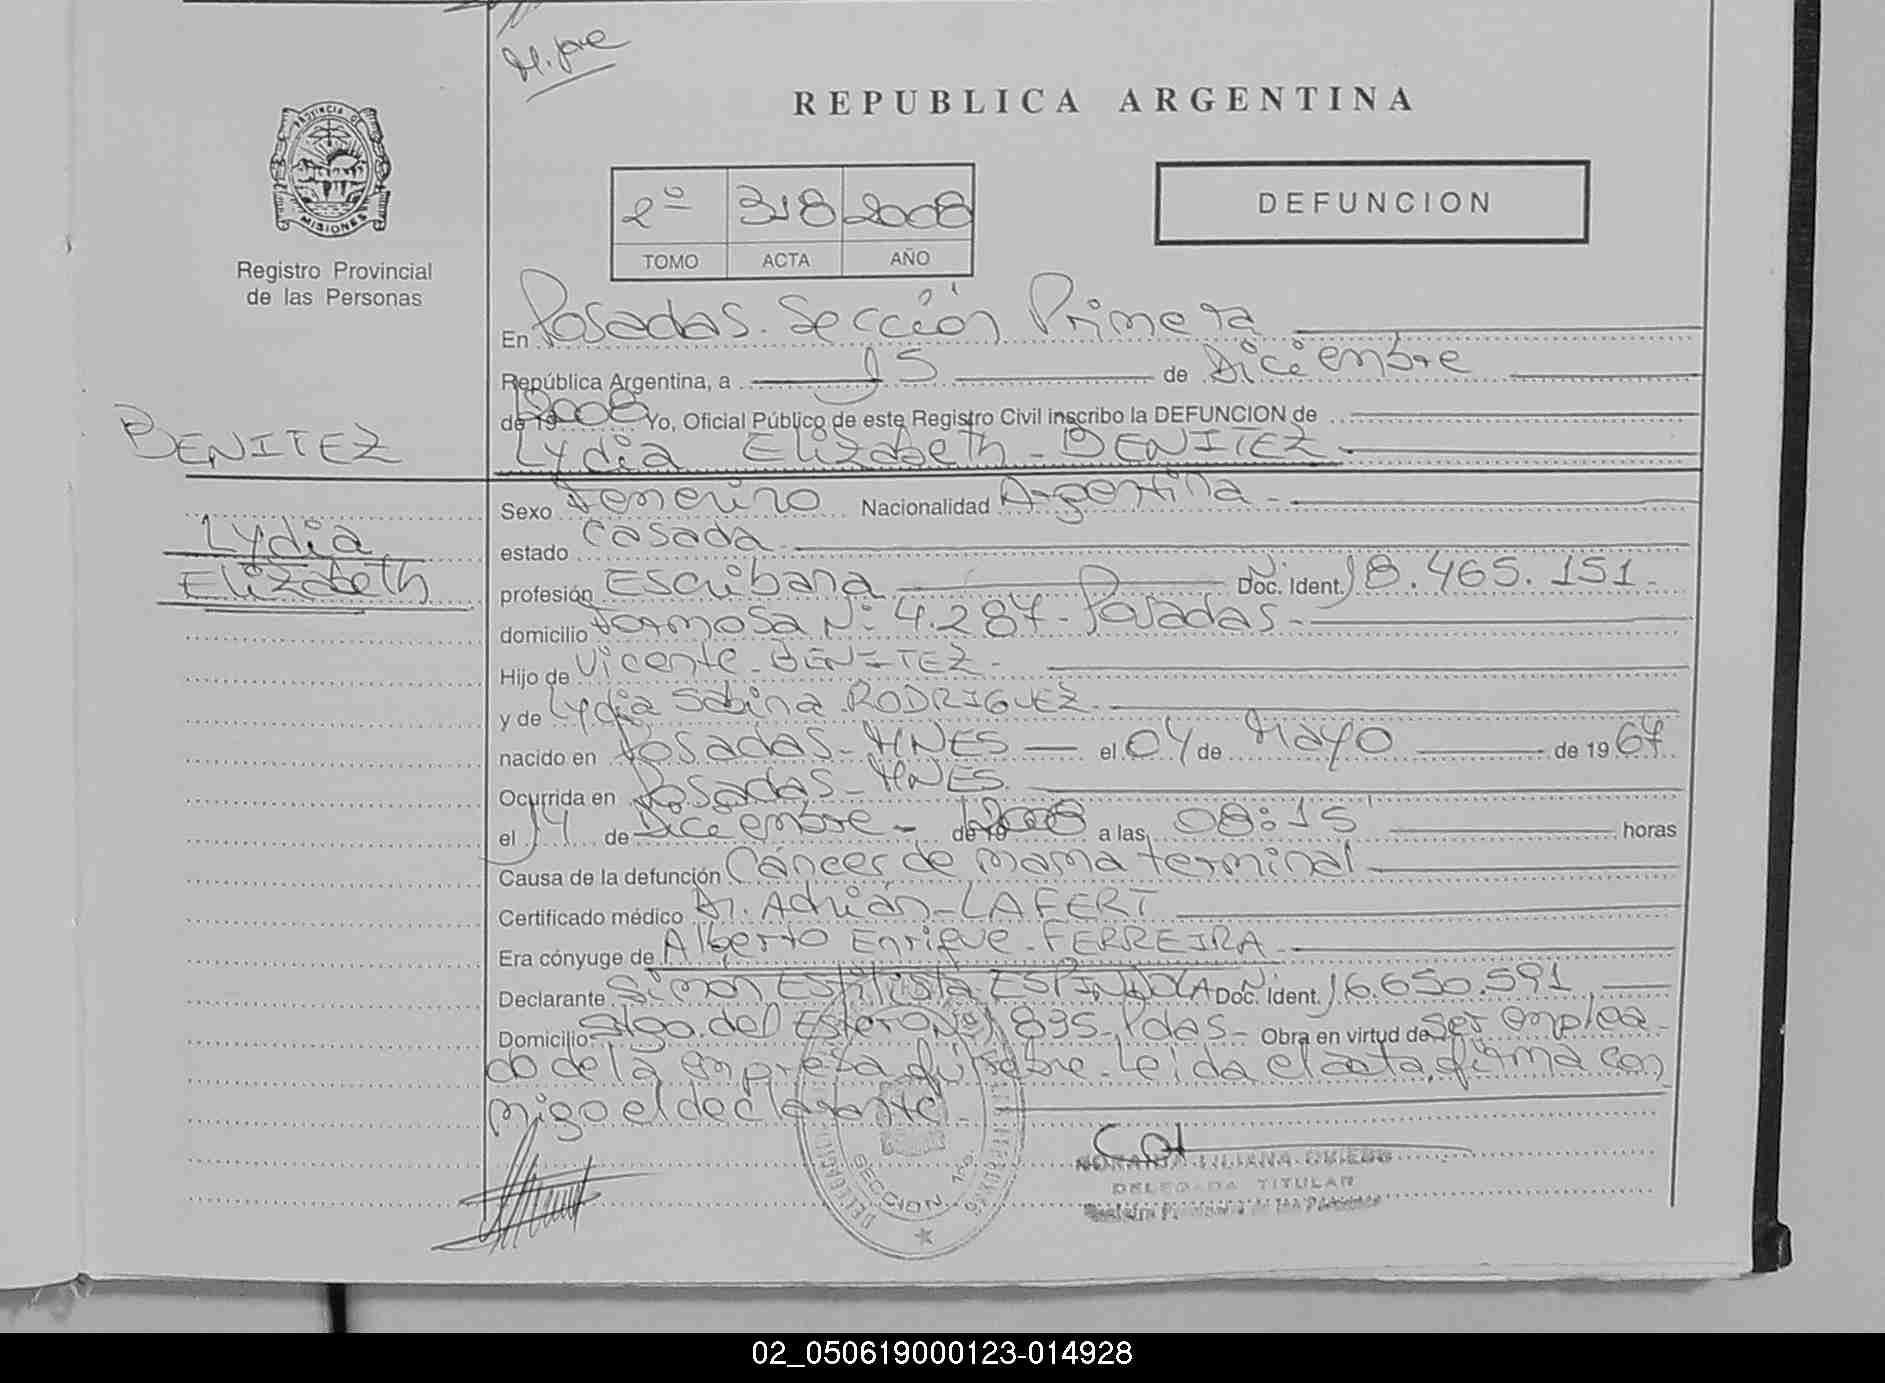 REPUBLICA ARGENTINA
PROVINCIA DE
MISIONES
Registro Provincial
de las Personas
2º 318 2008
TOMO ACTA AÑO
DEFUNCION
En Posadas. Sección Primera
República Argentina, a 15 de Diciembre
de 19 2008 Yo, Oficial Público de este Registro Civil inscribo la DEFUNCION de
BENITEZ
Lydia Elizabeth - BENITEZ
Lydia
Elizabeth
Sexo Femenino Nacionalidad Argentina -
estado Casada
profesión Escribana Doc. Ident. Nº 18.465.151-
domicilio Formosa Nº 4.287 - Posadas -
Hijo de Vicente - BENITEZ -
y de Lydia Sabina RODRIGUEZ -
nacido en Posadas - MNES - el 04 de Mayo de 1967
Ocurrida en Posadas - MNES
el 14 de Diciembre - de 19 2008 a las 08:15 horas
Causa de la defunción Cáncer de mama terminal
Certificado médico Dr. Adrián - LAFERT
Era cónyuge de Alberto Enrique - FERREIRA -
Declarante Simón ESPINDOLA Doc. Ident. Nº 16.650.591
Domicilio Stgo. del Estero Nº 1835 - Pdas - Obra en virtud de ser emplea
do de la empresa fúnebre - Leída el acta, firma con
migo el declarante -
SECCION 1ra
NORAIDA LILIANA OVIEDO
DELEGADA TITULAR
Registro Provincial de las Personas
02_050619000123-014928